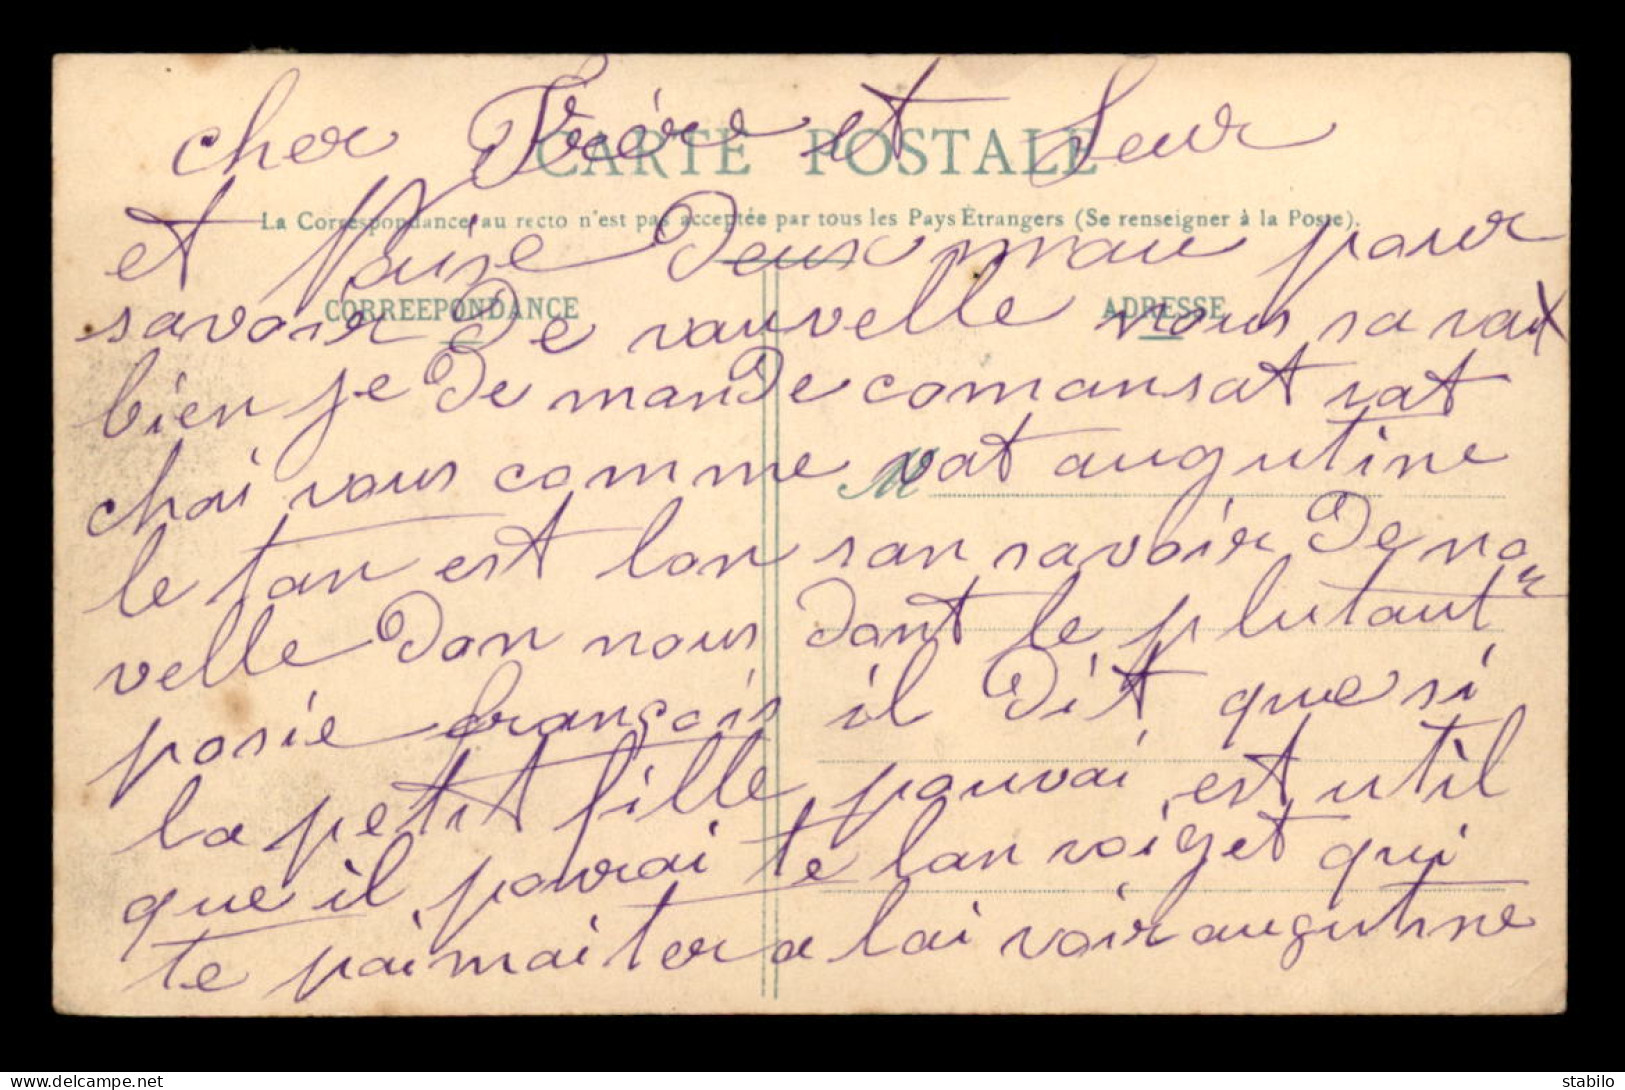 cher Frére et Seur
CARTE POSTALE
La Correspondance au recto n'est pas acceptée par tous les Pays Étrangers (Se renseigner à la Poste).
et Deux mau pour
CORREEPONDANCE
ADRESSE
savoir De nauvelle vous sa va
bien je De mande comansat vat
chai vous comme vat augutine
M
le tan est lon san savoir De no
velle Don nous Dont le plutaut
posie françois il Dit que si
la petit fille pouvai est util
que il pourai te lan voiget qui
te paimaiter a lai voir augutine
stabilo
delcampe.net